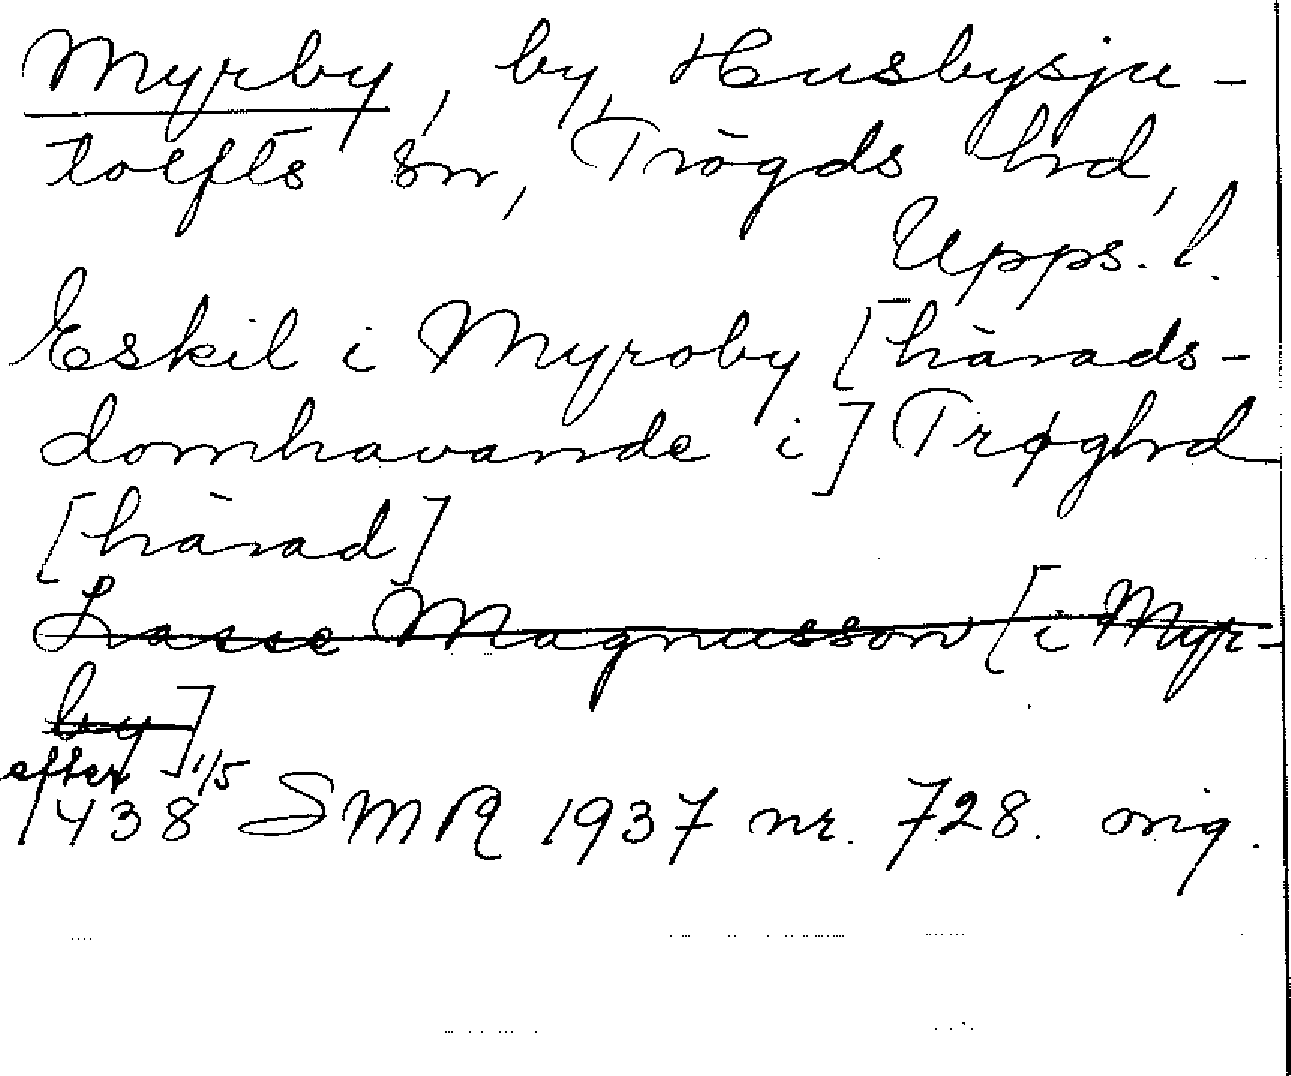 Myrby, by, Husbysju-
tolfts sn, Trögds hd,
Upps. l.
Eskil i Myroby [härads-
domhavande i] Trøghrd
[härad]
Lasse Magnusson [i Myr-
by]
efter 1/5
1438 SMR 1937 nr. 728. orig.